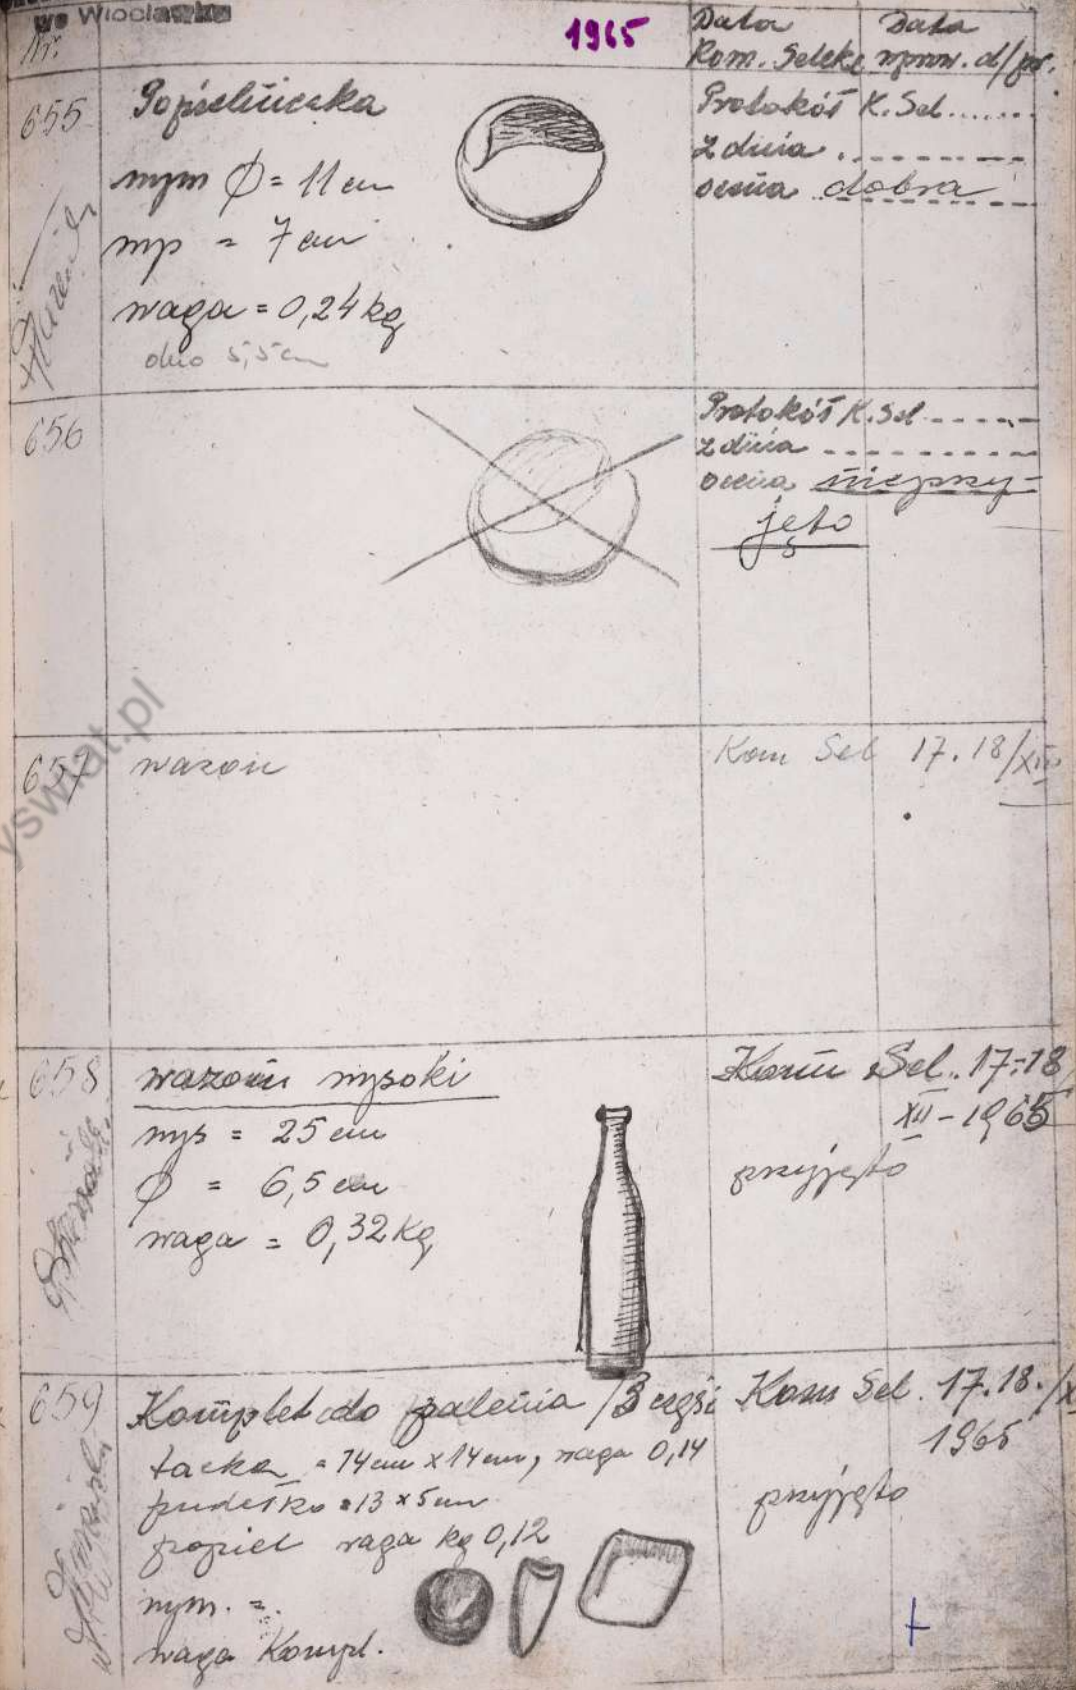 we Włocławku
Nr.
1965
Data
Kom. Selekc
Data
wprow. d/pr.
655
Popielniczka
wym φ = 11 cm
wys = 7 cm
waga = 0,24 kg
dno 5,5 cm
Protokół K. Sel.......
z dnia ..........
ocena dobra
656
Protokół K. Sel ........
z dnia ..........
ocena nieprzy-
jęto
657
wazon
Kom Sel 17.18/XII
658
wazon wysoki
wys = 25 cm
φ = 6,5 cm
waga = 0,32 kg
Kom Sel. 17-18
XII - 1965
przyjęto
659
Komplet do palenia /3 części
tacka = 14 cm x 14 cm, waga 0,14
pudełko = 13 x 5 cm
popiel waga kg 0,12
wym. =
waga Kompl.
Kom Sel. 17.18./X
1965
przyjęto
yswiat.pl